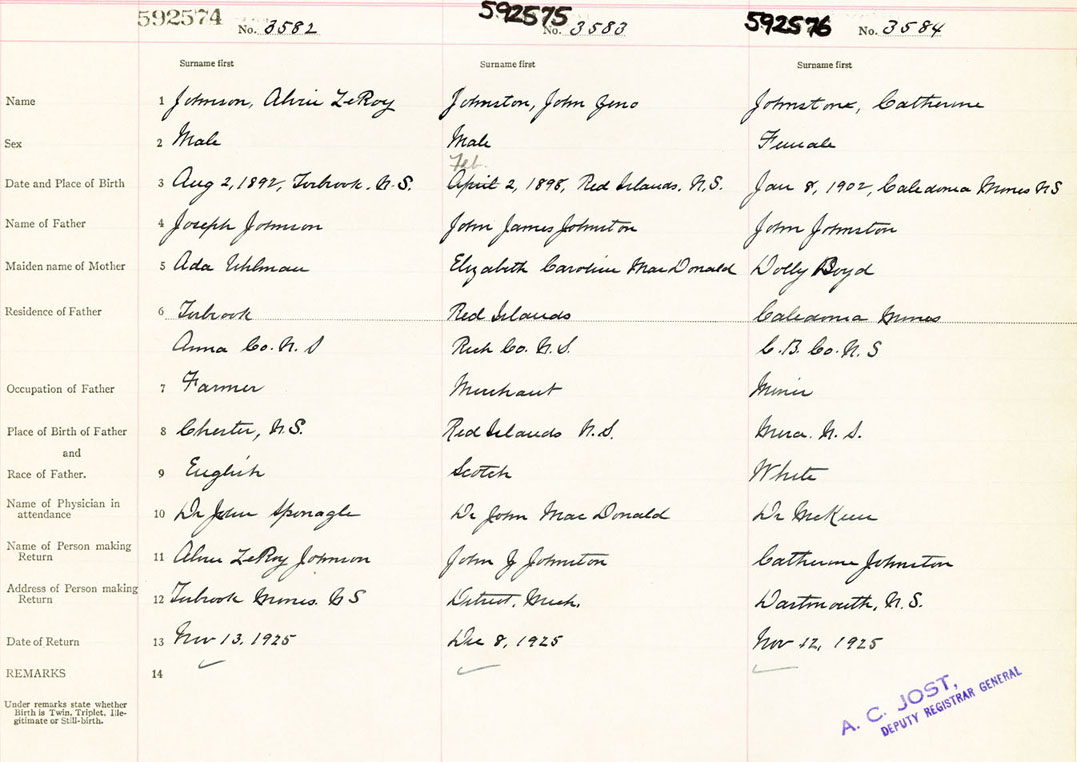 592574 No. 3582 592575 No. 3583 592576 No. 3584
Surname first Surname first Surname first
Name 1 Johnson, Alvie LeRoy Johnston, John Zeno Johnstone, Catherine
Sex 2 Male Male Female
Feb.
Date and Place of Birth 3 Aug 2, 1892, Torbrook. N.S. April 2, 1898, Red Islands. N.S. Jan 8, 1902, Caledonia Mines NS
Name of Father 4 Joseph Johnson John James Johnston John Johnston
Maiden name of Mother 5 Ada Uhlman Elizabeth Caroline MacDonald Dolly Boyd
Residence of Father 6 Torbrook Red Islands Caledonia Mines
Anna Co. N. S Rich Co. N.S. C. B. Co. N. S
Occupation of Father 7 Farmer Merchant Miner
Place of Birth of Father 8 Chester, N.S. Red Islands N.S. Mira. N. S.
and
Race of Father. 9 English Scotch White
Name of Physician in
attendance 10 Dr John Sponagle Dr John MacDonald Dr McKeen
Name of Person making
Return 11 Alvie LeRoy Johnson John Z Johnston Catherine Johnston
Address of Person making
Return 12 Torbrook Mines. N S Detroit, Mich. Dartmouth, N.S.
Date of Return 13 Nov 13, 1925 Dec 8, 1925 Nov 12, 1925
REMARKS 14
Under remarks state whether
Birth is Twin, Triplet, Ille-
gitimate or Still-birth.
A. C. JOST,
DEPUTY REGISTRAR GENERAL